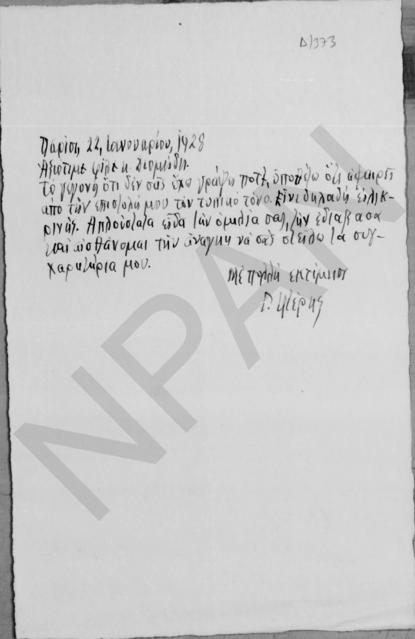 Δ/373
Παρίσι, 22, Ιανουαρίου, 1928
Αξιότιμε φίλε κ. Διομήδη.
Το γεγονός ότι δεν σας έχω γράψη ποτέ, υποθέτω ότι αφαιρεί
από την επιστολή μου τον τυπικό τόνο. Είνε δηλαδή ειλικ-
ρινής. Απλούστατα είδα την ομιλία σας, την εδιάβασα
και αισθάνομαι την ανάγκη να σας στείλω τα συγ-
χαρητήρια μου.
Με πολλή εκτίμηση
NPATENA